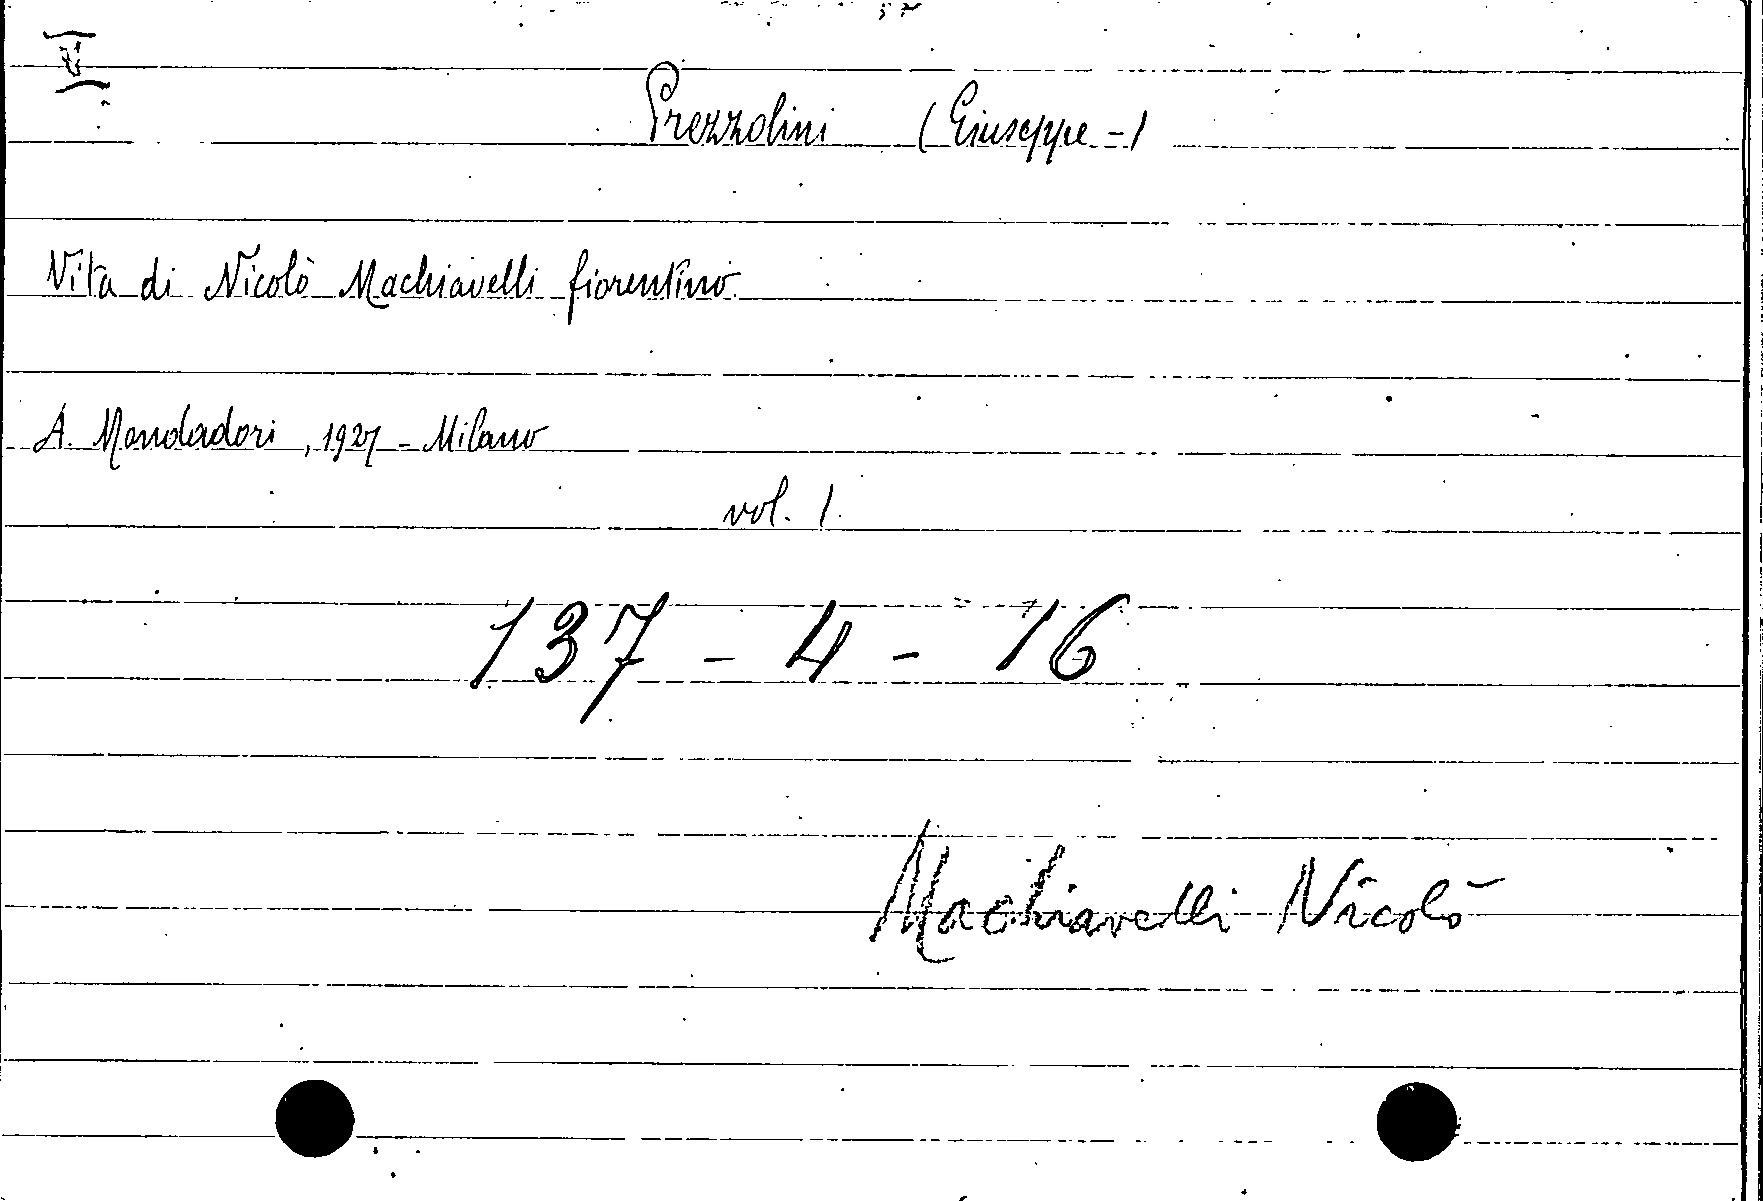 Prezzolini (Giuseppe-)
Vita di Nicolò Machiavelli fiorentino
A. Mondadori, 1927 - Milano
vol. 1
137 - 4 - 16
Machiavelli Nicolò